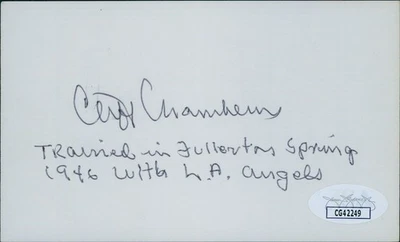 Cliff Chambers
Trained in Fullerton Spring
1946 with L.A. Angels
JSA
CG42249